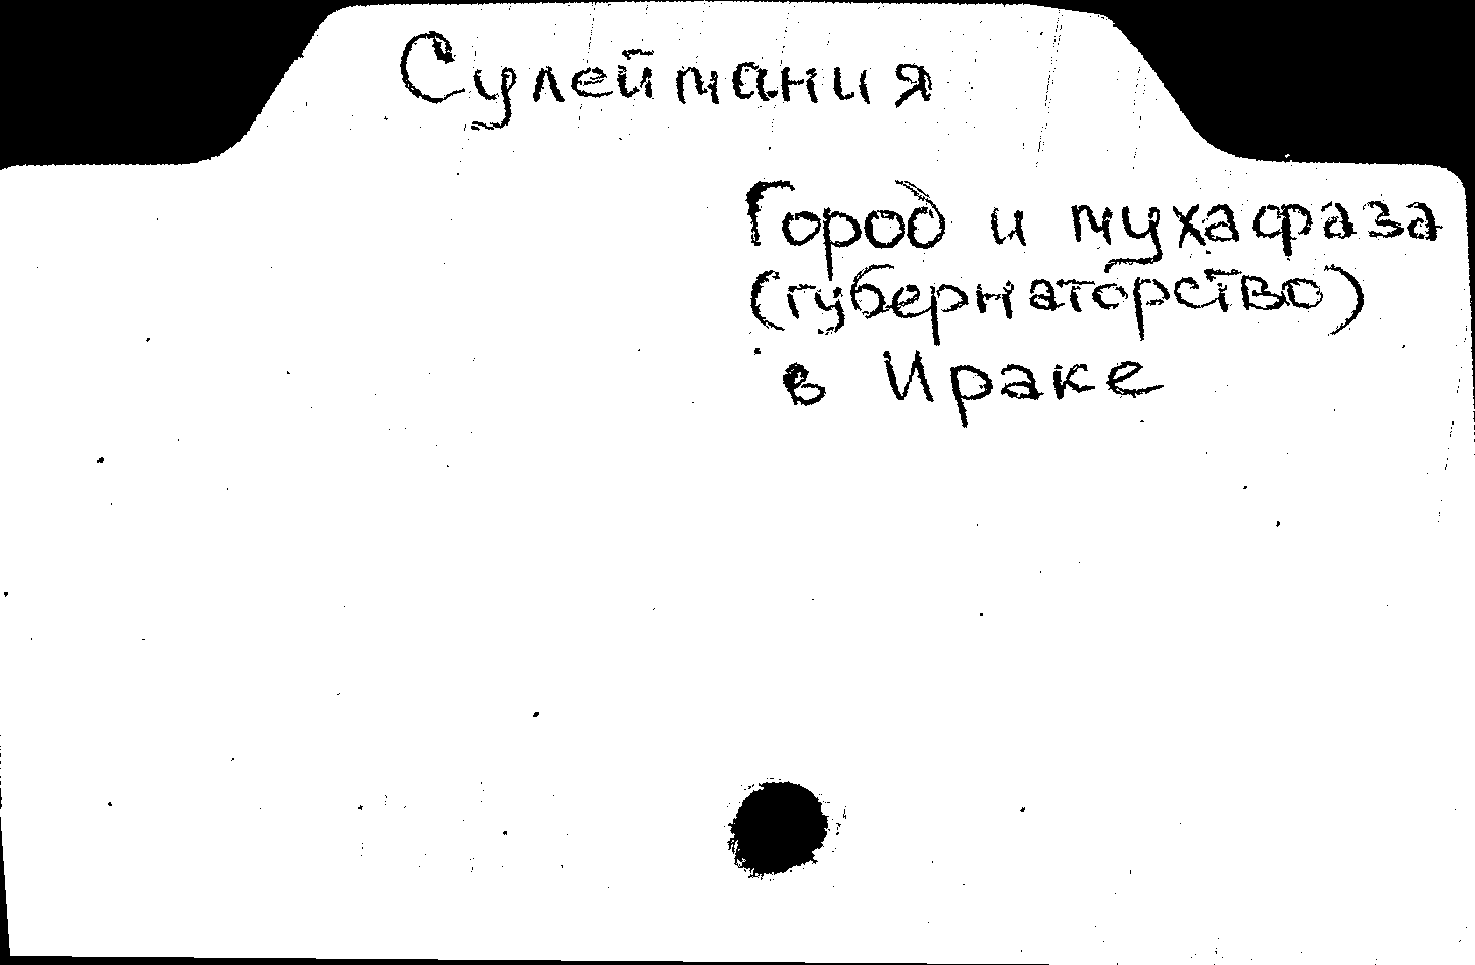 Сулеймания
Город и мухафаза
(губернаторство)
в Ираке